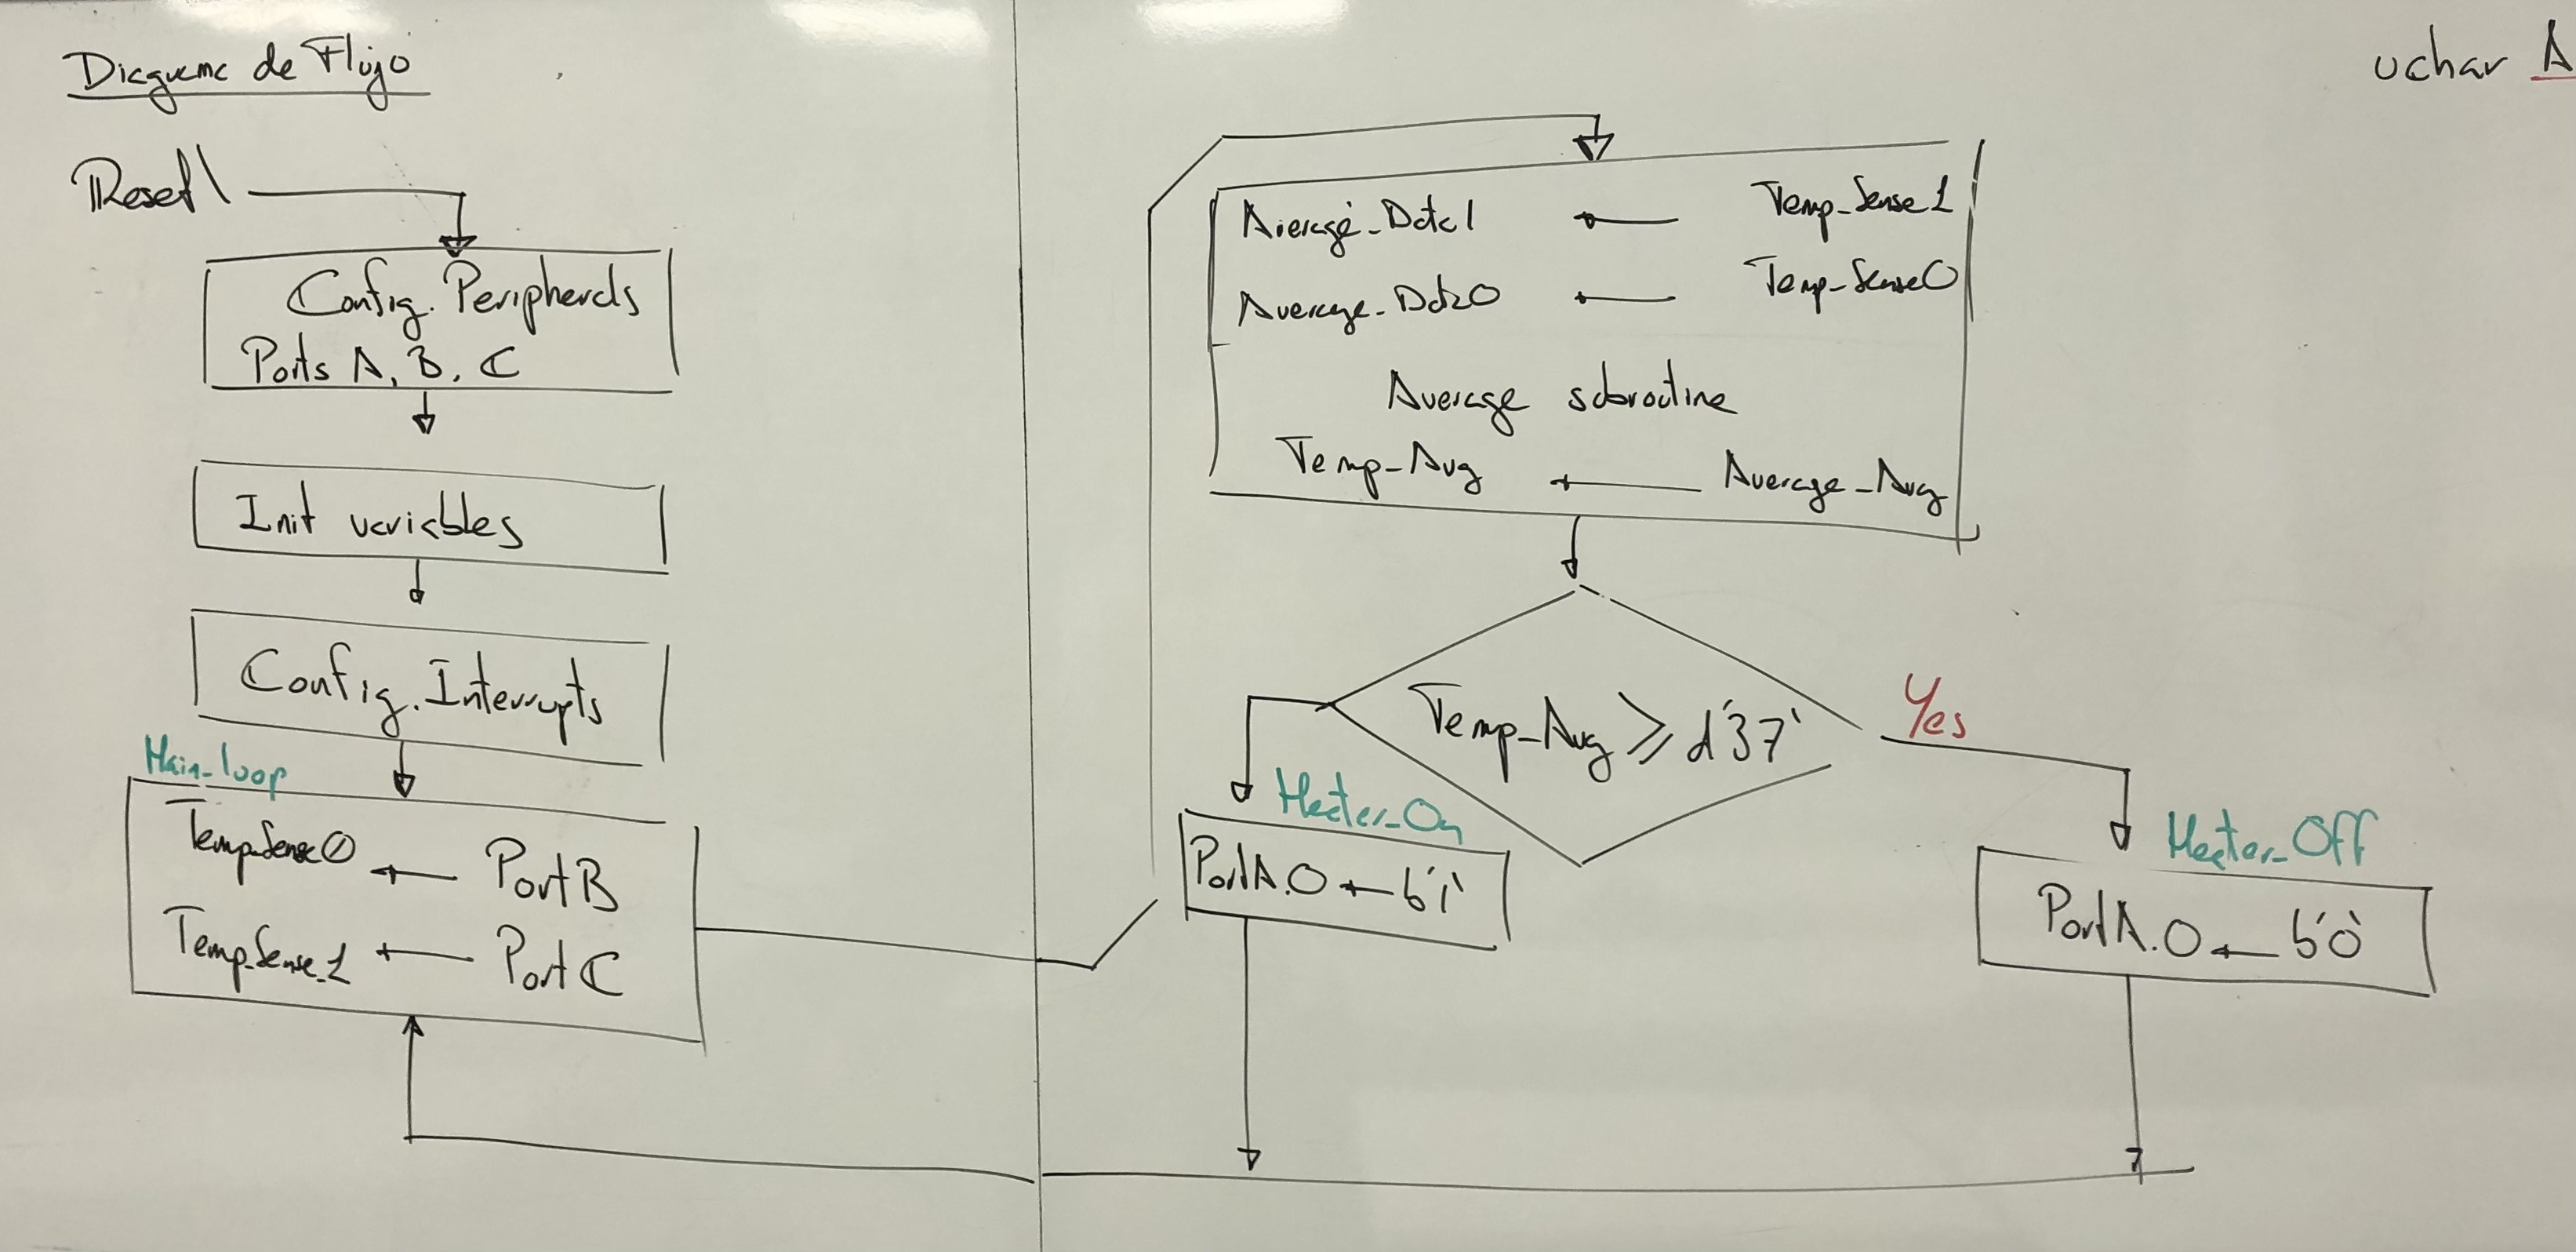 Diagrama de Flujo
Reset\
Config. Peripherals
Ports A, B, C
Init variables
Config. Interrupts
Main_loop
Temp_Sense0 ← Port B
Temp_Sense_1 ← Port C
Average_Data1 ← Temp_Sense1
Average_Data0 ← Temp_Sense0
Average subroutine
Temp_Avg ← Average_Avg
Temp_Avg ≥ d'37'
Yes
Heater_On
PortA.0 ← b'1'
Heater_Off
PortA.0 ← b'0'
uchar A